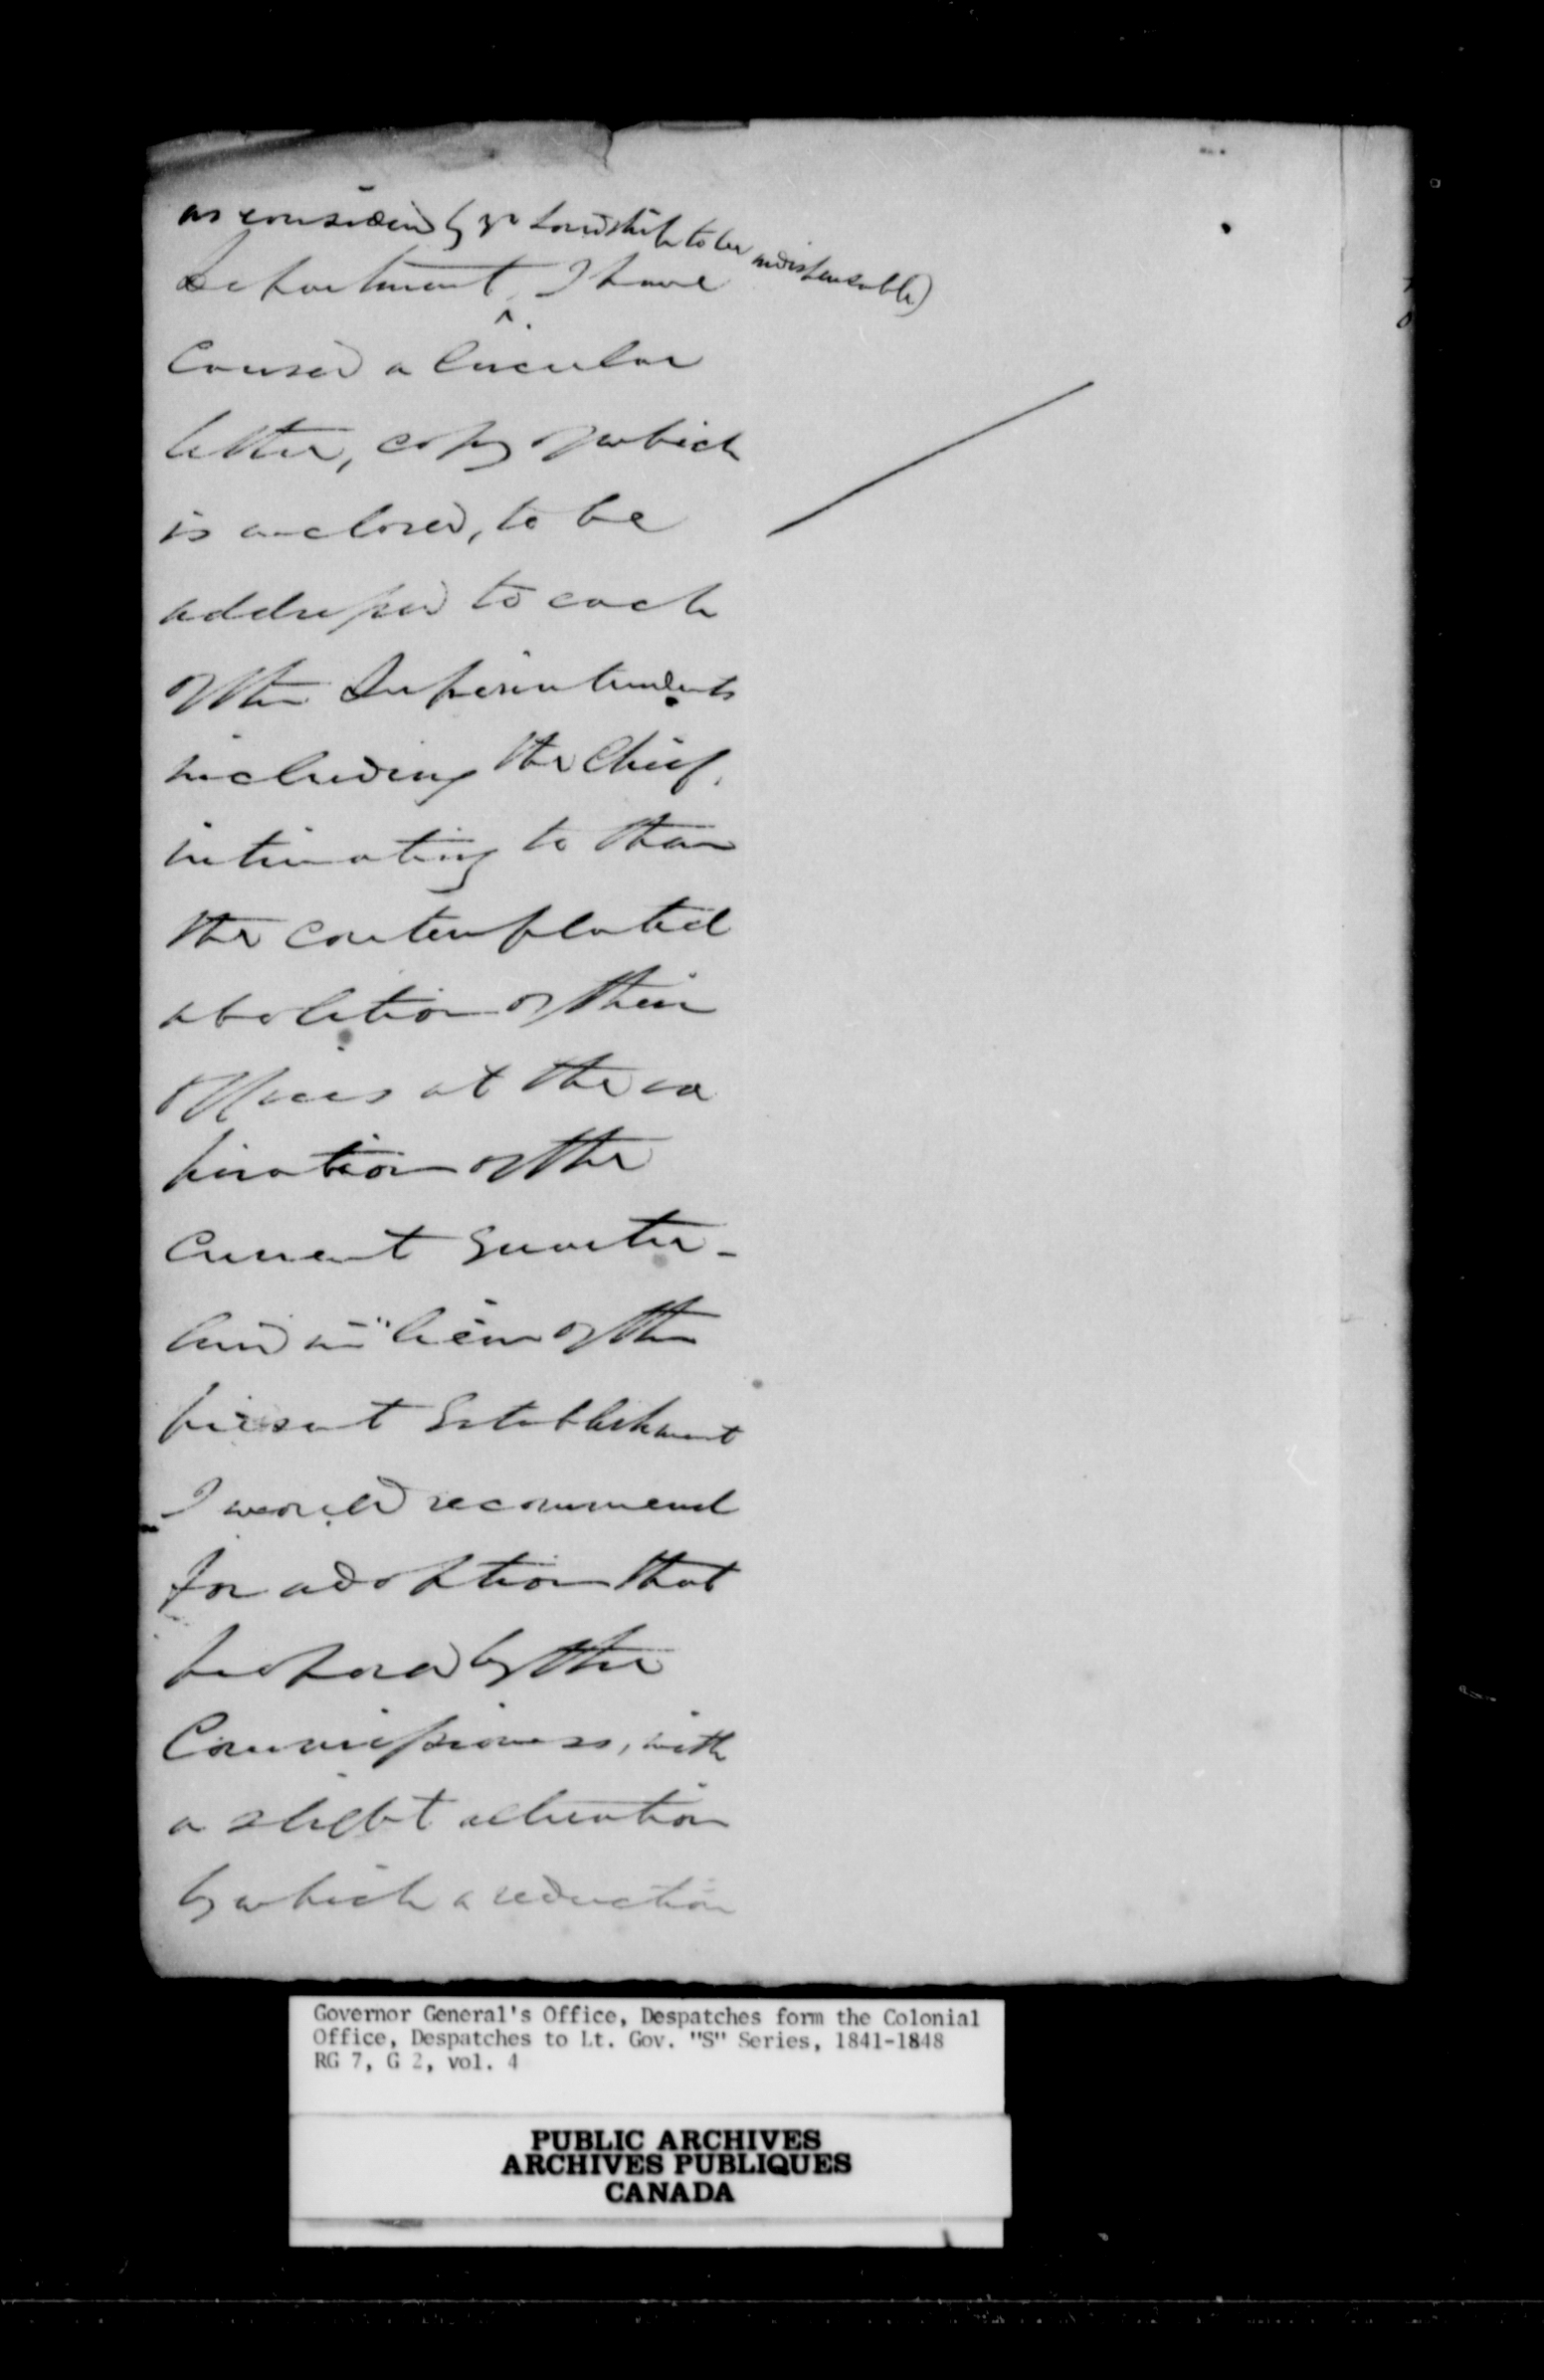 as considered by yr Lordship to be indispensable)
Department, I have
^
Caused a Circular
letter, copy of which
is enclosed, to be
addressed to each
of the Superintendents
including the Chief,
intimating to them
the contemplated
abolition of their
offices at the ex
piration of the
Current Quarter -
And in lieu of the
present Establishment
I would recommend
for adoption that
proposed by the
Commissioners, with
a slight alteration
by which a reduction
Governor General's Office, Despatches form the Colonial
Office, Despatches to Lt. Gov. "S" Series, 1841-1848
RG 7, G 2, vol. 4
PUBLIC ARCHIVES
ARCHIVES PUBLIQUES
CANADA